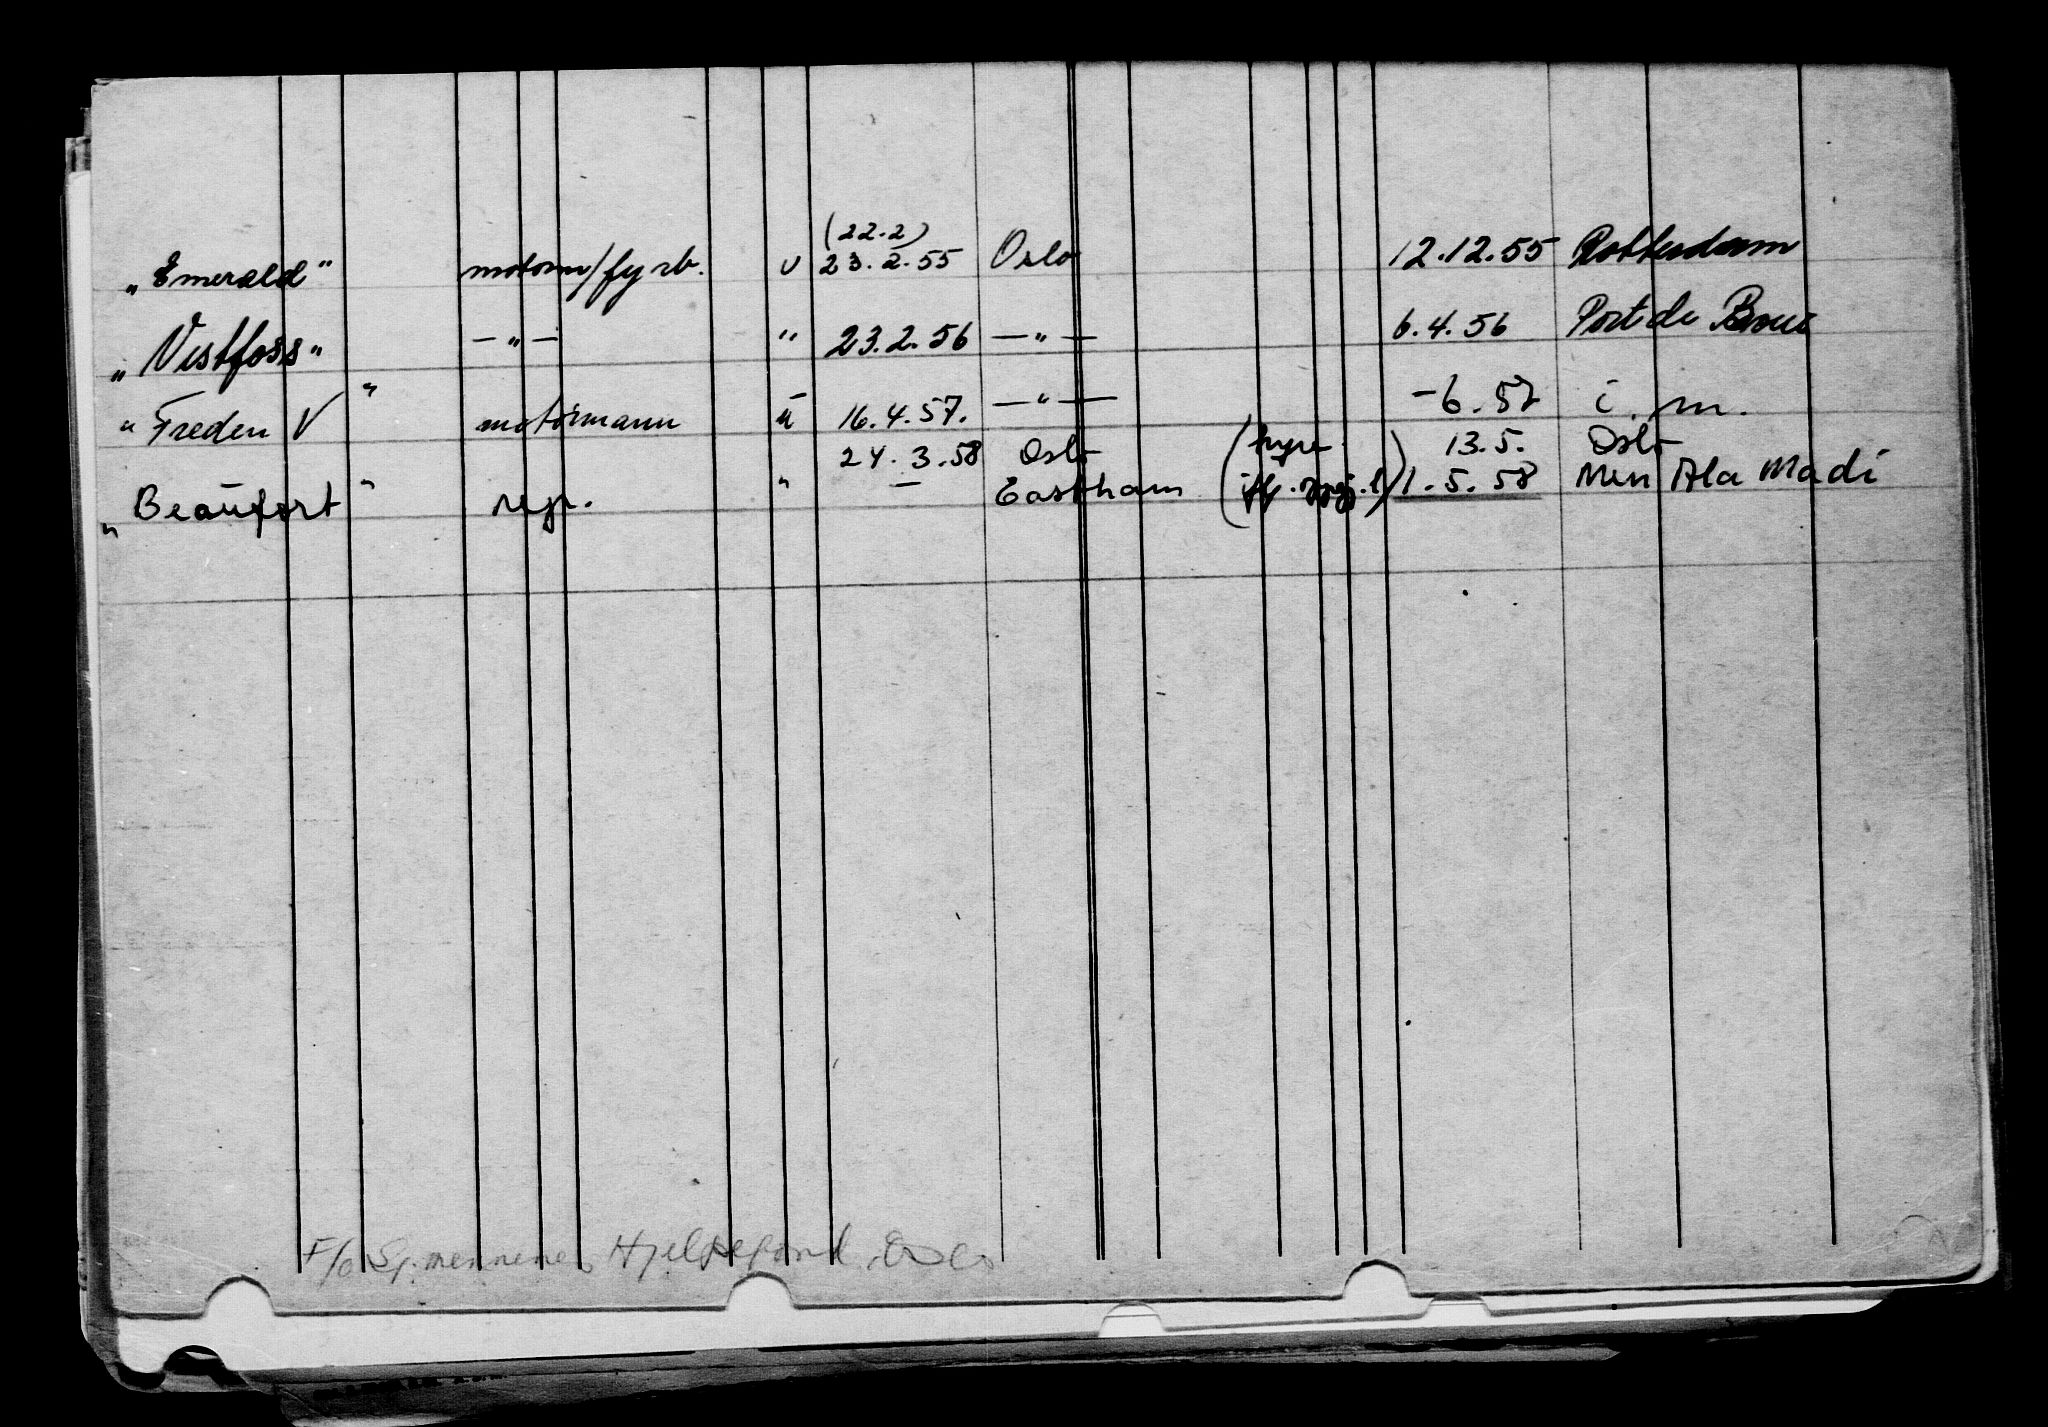 (22.2)
„Emerald" motorm/fyrb. u 23.2.55 Oslo 12.12.55 Rotterdam
„Vestfoss" —„— " 23.2.56 —„— 6.4.56 Port de Bouc
„Freden V" motormann u 16.4.57. —„— -6.57 i. m.
24.3.58 Oslo (hyre 13.5. Oslo
„Beaufort" repr. " — Eastham 1.5.58 Men Ala Madi
F/o Sj.mennenes Hjelpefond, Oslo